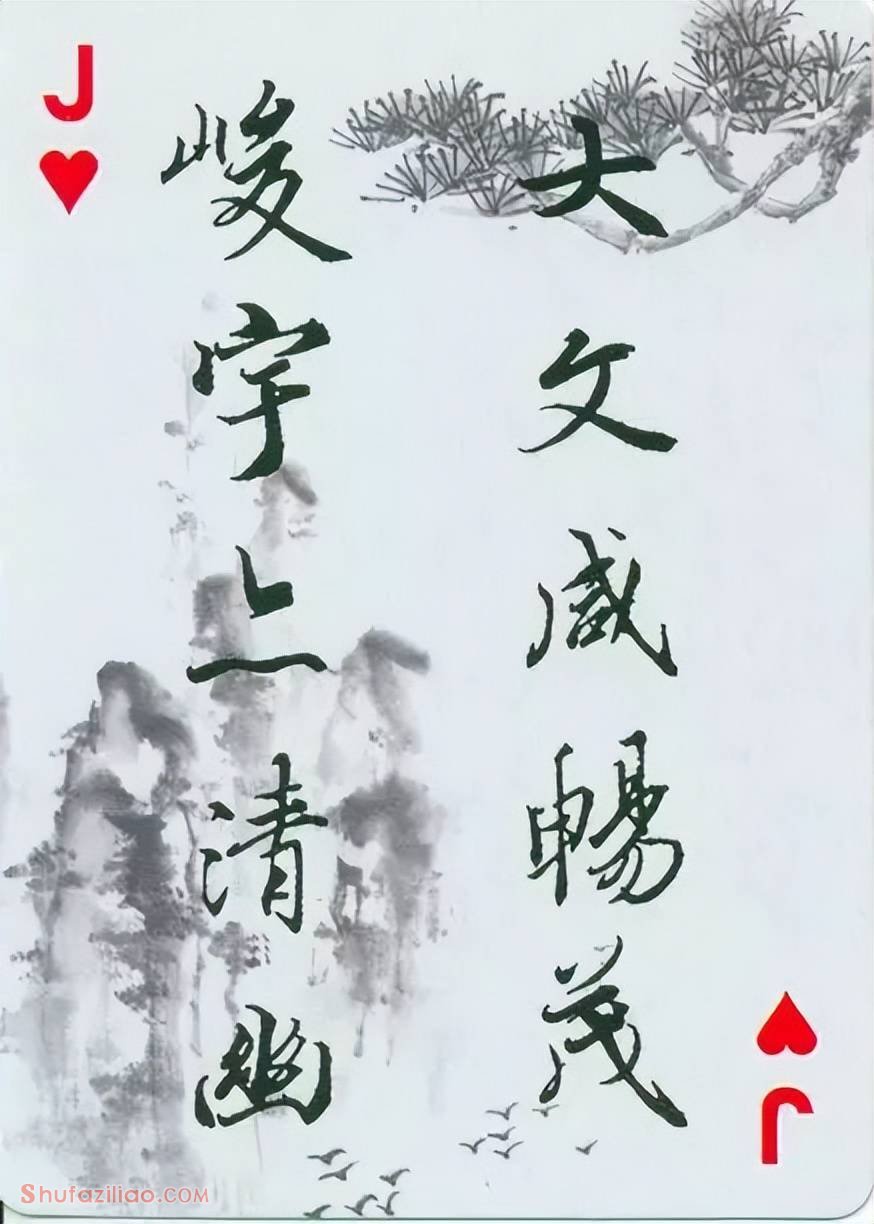 J
大文咸暢茂
峻宇上清幽
J
Shufaziliao.com